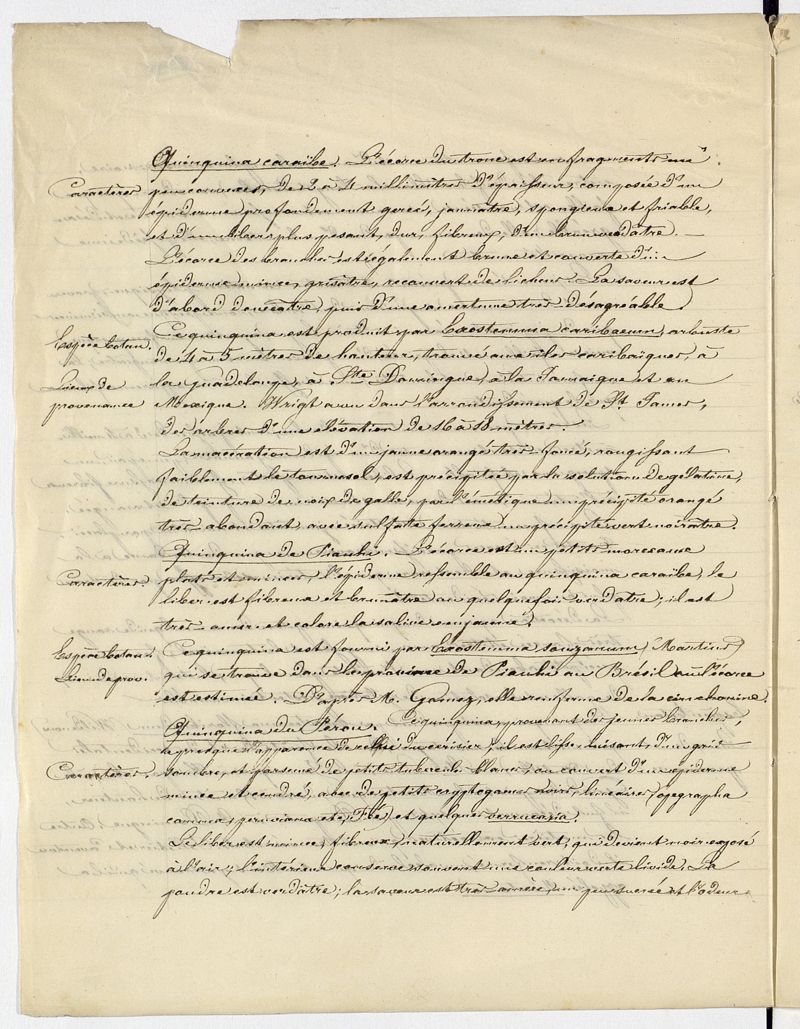 Quinquina caraïbe. L'écorce du tronc est en fragments un
Caractères
peu convexes, de 2 à 4 millimètres d'épaisseur, composée d'un
épiderme profondement gercé, jaunâtre, spongieux et friable,
et d'un liber plus pesant, dur, fibreux, d'un brun verdâtre. —
L'écorce des branches est également brune et couverte d'un
épiderme mince, grisâtre, recouvert de lichens. La saveur est
d'abord douceâtre, puis d'une amertume très désagréable.
Espèce botan.
Ce quinquina est produit par Exostemma caribaeum, arbuste
de 4 à 5 mètres de hauteur, trouvé aux îles caribaïques, à
Lieux de
provenance
la Guadeloupe, à Ste Domingue, à la Jamaïque et au
Mexique. Wrigt a vu dans l'arrondissement de St. James,
des arbres d'une élévation de 16 à 18 mètres.
La macération est d'un jaune orangé très foncé, rougissant
faiblement le tournesol, est précipitée par la solution de gélatine,
de teinture de noix de galle, par l'émétique un précipité orangé
très abondant avec sulfate ferreux un précipité vert noirâtre.
Quinquina de Piauhi. L'écorce est en petits morceaux
Caractères.
plats et minces, l'épiderme ressemble au quinquina caraïbe, le
liber est fibreux et brunâtre ou quelquefois verdâtre; il est
très amer et colore la salive en jaune.
Espèce botan.
Lieu de prov.
Ce quinquina est fourni par Exostemma souzanum, (Martius)
qui se trouve dans la province de Piauhi au Brésil où l'écorce
est estimée. D'après M. Gomez, elle renferme de la cinchonine.
Quinquina du Pérou. Ce quinquina, provenant des jeunes branches,
a presque l'apparence de celui du cerisier; il est lisse, luisant, d'un gris
Caractères.
sombre, et parsemé de petits tubercules blancs, ou couvert d'un épiderme
mince et cendré, avec de petits cryptogames noirs, linéaires (opegrapha
comma, peruviana etc, Fée) et quelques verrucaria.
Le liber est mince, fibreux, naturellement vert, qui devient noir exposé
à l'air; l'intérieur conserve souvent une couleur verte livide. La
poudre est verdâtre; la saveur est très amère, un peu sucrée et l'odeur